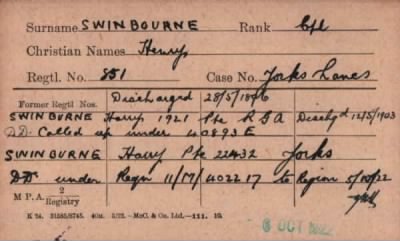 Surname SWINBOURNE Rank Cpl
Christian Names Henry
Regtl. No. 851 Case No. Yorks Lancs
Former Regtl Nos. Discharged 28/5/1896
SWINBOURNE Harry 1921 Pte R G A Dischgd 12/5/1903
DD. Called up under 40893 E
SWINBOURNE Harry Pte 22432 Yorks
DD under Regn 11/17/402217 to Region 5/10/22
M P A. 2 Registry
K 24. 31585/8745. 40M. 5/22.—McC. & Co. Ltd.—111. 10.
OCT 1922